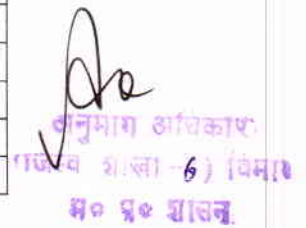 अनुभाग अधिकारी
राजस्व शाखा -6) विभाग
म० प्र० शासन